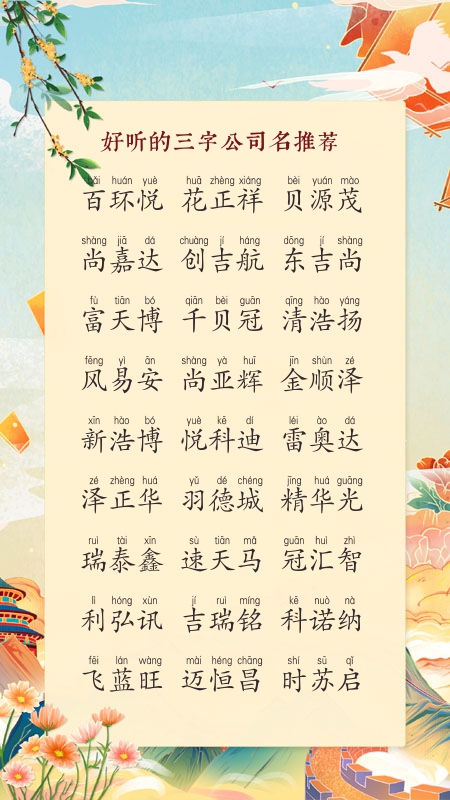 好听的三字公司名推荐
bǎi huán yuè huā zhèng xiáng bèi yuán mào
百环悦 花正祥 贝源茂
shàng jiā dá chuàng jí háng dōng jí shàng
尚嘉达 创吉航 东吉尚
fù tiān bó qiān bèi guān qīng hào yáng
富天博 千贝冠 清浩扬
fēng yì ān shàng yà huī jīn shùn zé
风易安 尚亚辉 金顺泽
xīn hào bó yuè kē dí léi ào dá
新浩博 悦科迪 雷奥达
zé zhèng huá yǔ dé chéng jīng huá guāng
泽正华 羽德城 精华光
ruì tài xīn sù tiān mǎ guān huì zhì
瑞泰鑫 速天马 冠汇智
lì hóng xùn jí ruì míng kē nuò nà
利弘讯 吉瑞铭 科诺纳
fēi lán wàng mài héng chāng shí sū qǐ
飞蓝旺 迈恒昌 时苏启